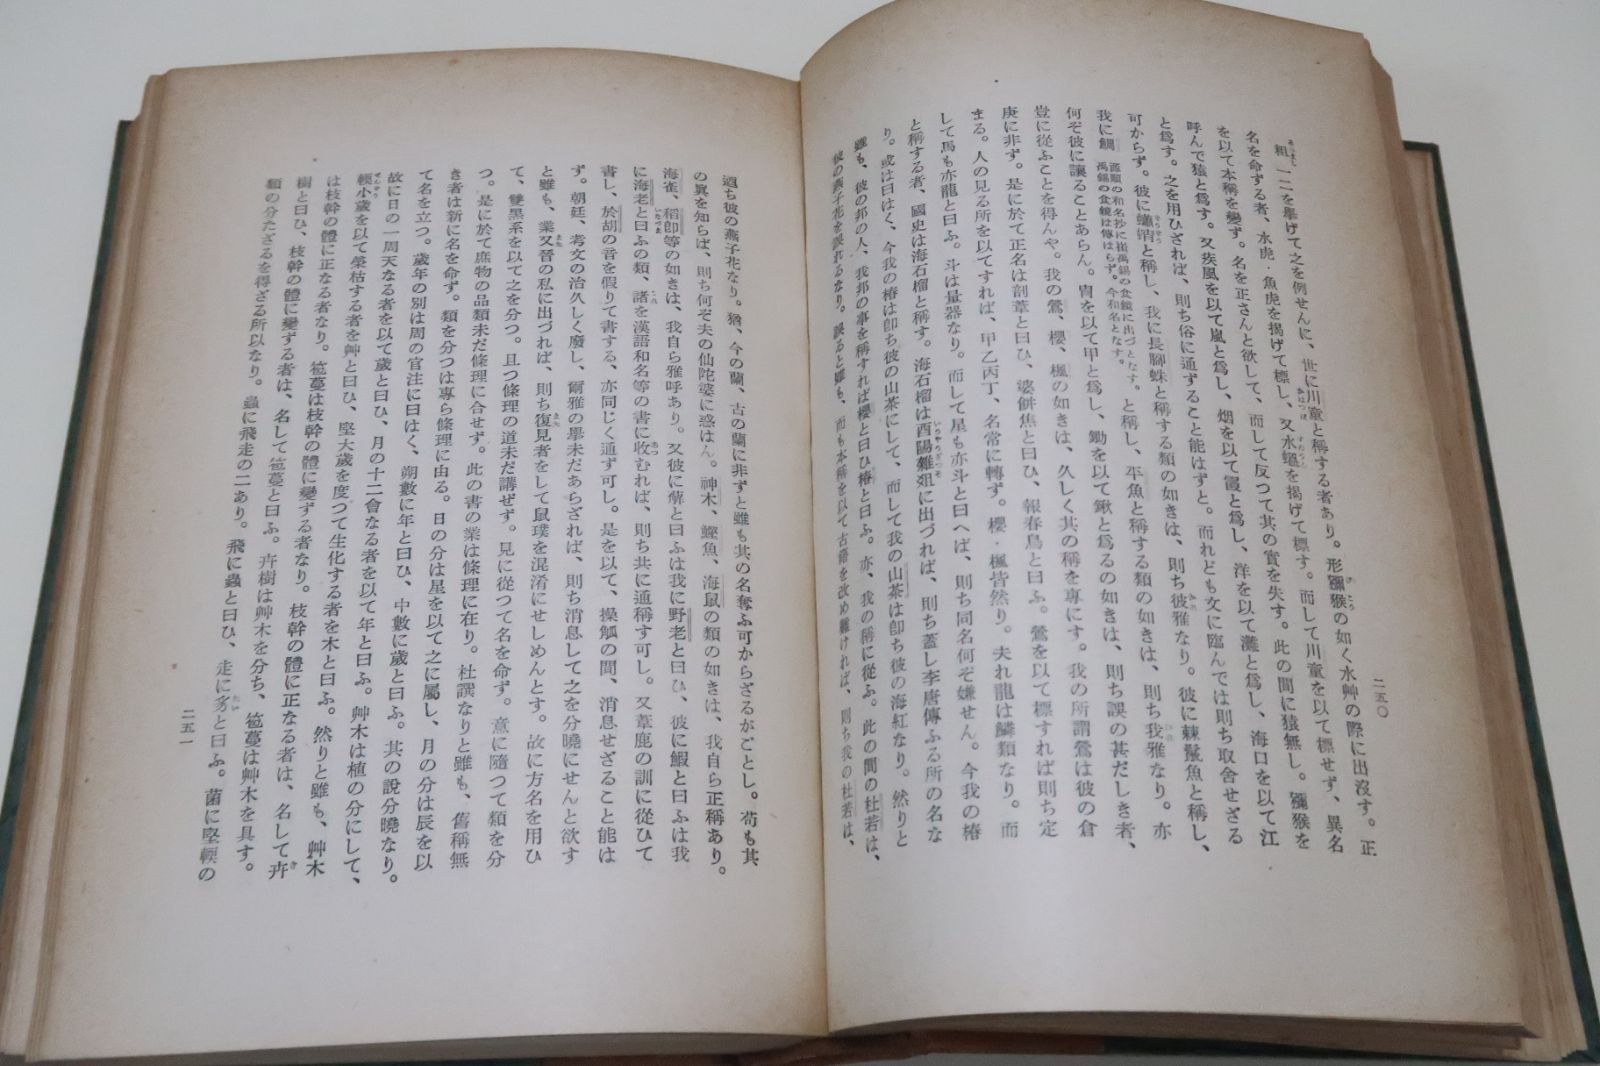 粗、一二を擧げて之を例せんに、世に川童と稱する者あり。形獼猴の如く水艸の際に出沒す。正
名を命ずる者、水虎・魚虎を揭げて標し、又水蝹を揭げて標す。而して川童を以て標せず、異名
を以て本稱を變ず。名を正さんと欲して、而して反つて其の實を失す。此の間に猿無し。獼猴を
呼んで猿と爲す。又疾風を以て嵐と爲し、烟を以て霞と爲し、洋を以て灘と爲し、海口を以て江
と爲す。之を用ひざれば、則ち俗に通ずること能はずと。而れども文に臨んでは則ち取舍せざる
可からず。彼に蠨蛸と稱し、我に長脚蛛と稱する類の如きは、則ち彼雅なり。彼に棘鬣魚と稱し、
我に鯛 源順の和名抄に崔禹錫の食鏡に出づとなす。
禹錫の食鏡は傳はらず。今和名となす。 と稱し、平魚と稱する類の如きは、則ち我雅なり。亦
何ぞ彼に讓ることあらん。冑を以て甲と爲し、鋤を以て鍬と爲るの如きは、則ち誤の甚だしき者、
豈に從ふことを得んや。我の鶯、櫻、楓の如きは、久しく其の稱を專にす。我の所謂鶯は彼の倉
庚に非ず。是に於て正名は剖葦と曰ひ、婆餠焦と曰ひ、報春鳥と曰ふ。鶯を以て標すれば則ち定
まる。人の見る所を以てすれば、甲乙丙丁、名常に轉ず。櫻・楓皆然り。夫れ龍は鱗類なり。而
して馬も亦龍と曰ふ。斗は量器なり。而して星も亦斗と曰へば、則ち同名何ぞ嫌せん。今我の椿
と稱する者、國史は海石榴と稱す。海石榴は酉陽雜俎に出づれば、則ち蓋し李唐傳ふる所の名な
り。或は曰はく、今我の椿は卽ち彼の山茶にして、而して我の山茶は卽ち彼の海紅なり。然りと
雖も、彼の邦の人、我邦の事を稱すれば櫻と曰ひ椿と曰ふ。亦、我の稱に從ふ。此の間の杜若は、
彼の燕子花を誤れるなり。誤ると雖も、而も本稱を以て古籍を改め難ければ、則ち我の杜若は、
二五〇
迺ち彼の燕子花なり。猶、今の蘭、古の蘭に非ずと雖も其の名奪ふ可からざるがごとし。苟も其
の異を知らば、則ち何ぞ夫の仙陀婆に惑はん。神木、鰹魚、海鼠の類の如きは、我自ら正稱あり。
海雀、稻卽等の如きは、我自ら雅呼あり。又彼に萆と曰ふは我に野老と曰ひ、彼に鰕と曰ふは我
に海老と曰ふの類、諸を漢語和名等の書に收むれば、則ち共に通稱す可し。又葦鹿の訓に從ひて
書し、於胡の音を假りて書する、亦同じく通ず可し。是を以て、操觚の間、消息せざること能は
ず。朝廷、考文の治久しく廢し、爾雅の擧未だあらざれば、則ち消息して之を分曉にせんと欲す
と雖も、業又晉の私に出づれば、則ち復見者をして鼠璞を混淆にせしめんとす。故に方名を用ひ
て、雙黑系を以て之を分つ。且つ條理の道未だ講ぜず。見に從つて名を命ず。意に隨つて類を分
つ。是に於て庶物の品類未だ條理に合せず。此の書の業は條理に在り。杜譔なりと雖も、舊稱無
き者は新に名を命ず。類を分つは專ら條理に由る。日の分は星を以て之に屬し、月の分は辰を以
て名を立つ。歲年の別は周の官注に曰はく、朔數に年と曰ひ、中數に歲と曰ふ。其の說分曉なり。
故に日の一周天なる者を以て歲と曰ひ、月の十二會なる者を以て年と曰ふ。艸木は植の分にして、
輭小歲を以て榮枯する者を艸と曰ひ、堅大歲を度つて生化する者を木と曰ふ。然りと雖も、艸木
は枝幹の體に正なる者なり。苞蔓は枝幹の體に變ずる者なり。枝幹の體に正なる者は、名して卉
樹と曰ひ、枝幹の體に變ずる者は、名して苞蔓と曰ふ。卉樹は艸木を分ち、苞蔓は艸木を具す。
類の分たざるを得ざる所以なり。蟲に飛走の二あり。飛に蟲と曰ひ、走に豸と曰ふ。菌に堅輭の
二五一